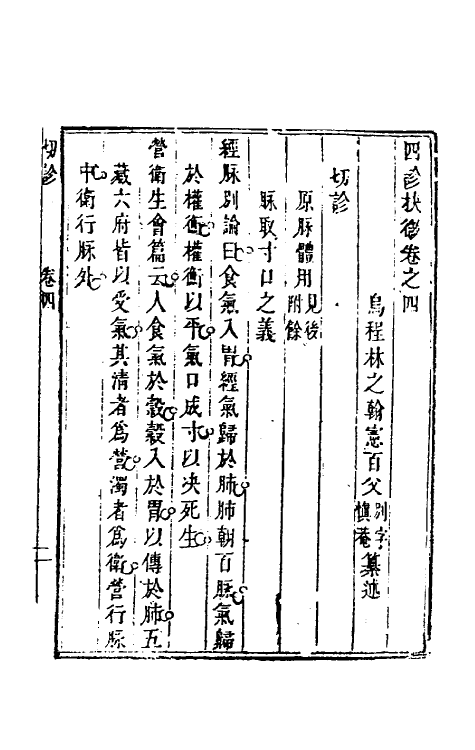 四診抉微卷之四
烏程林之翰憲百父別字慎菴纂述
切診
原脉體用見後附餘
脉取寸口之義
經脉別論曰食氣入胃經氣歸於肺肺朝百脉氣歸
於權衡權衡以平氣口成寸以决死生
營衛生會篇云人食氣於穀穀入於胃以傳於肺五
藏六府皆以受氣其清者爲營濁者爲衛營行脉
中衛行脉外
切診 卷四 一